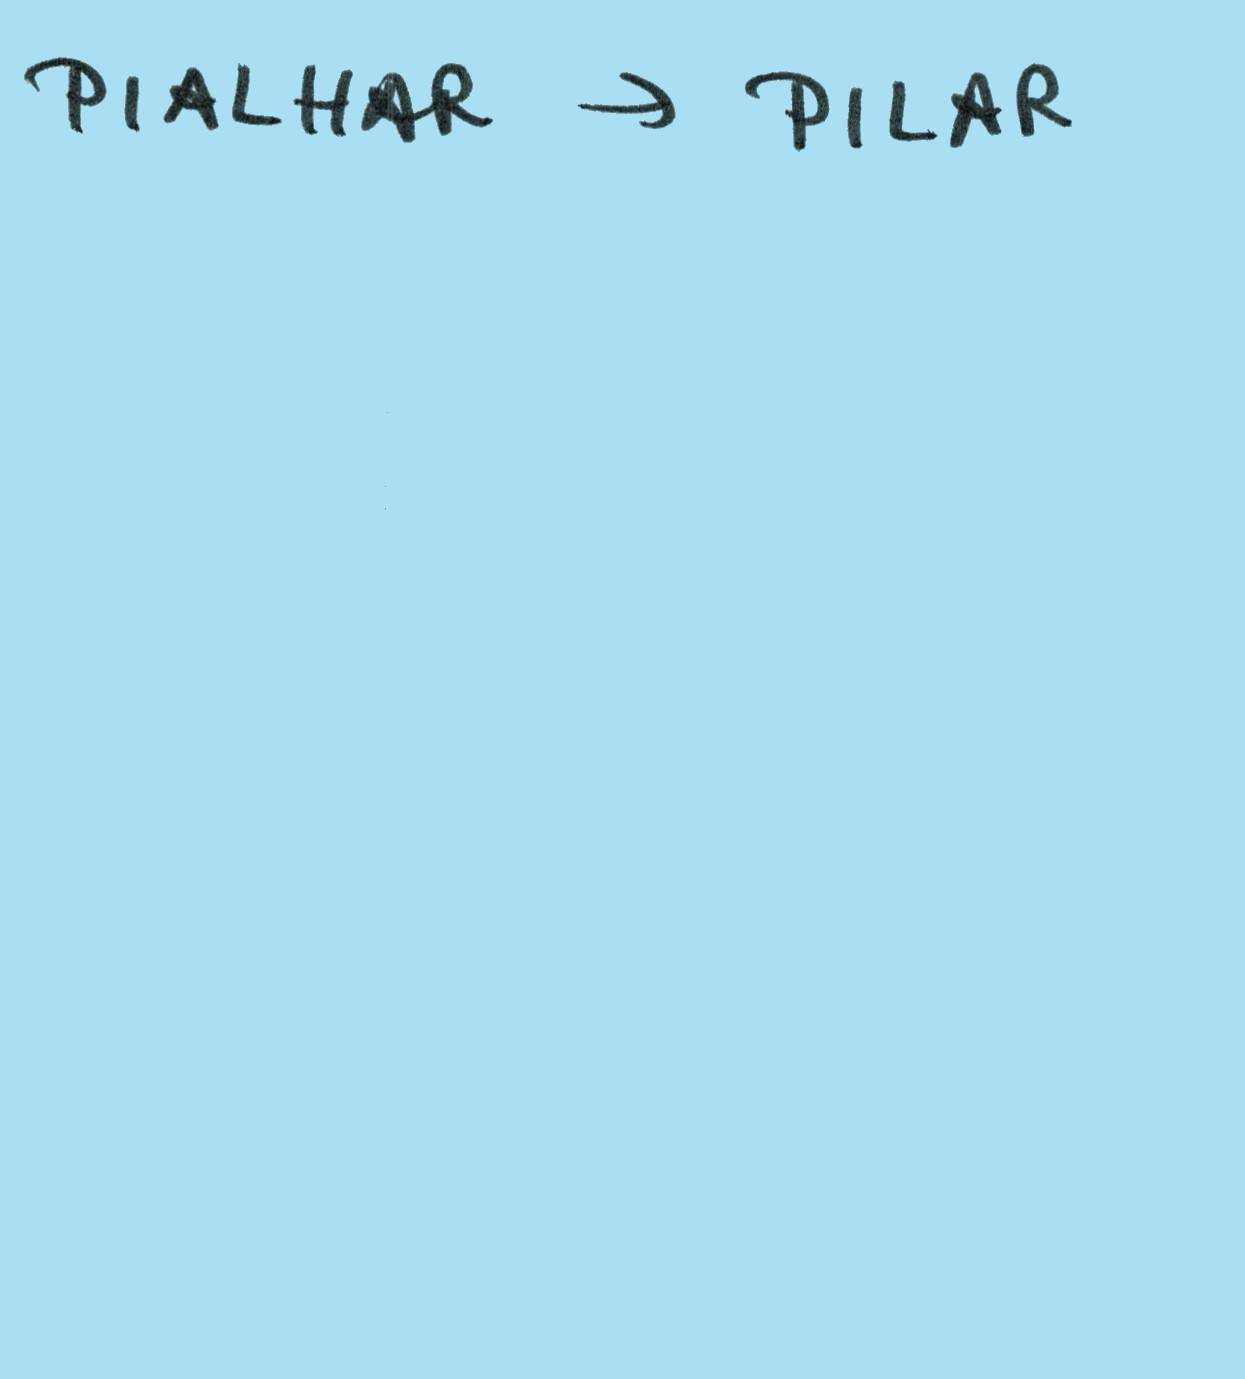 PIALHAR → PILAR